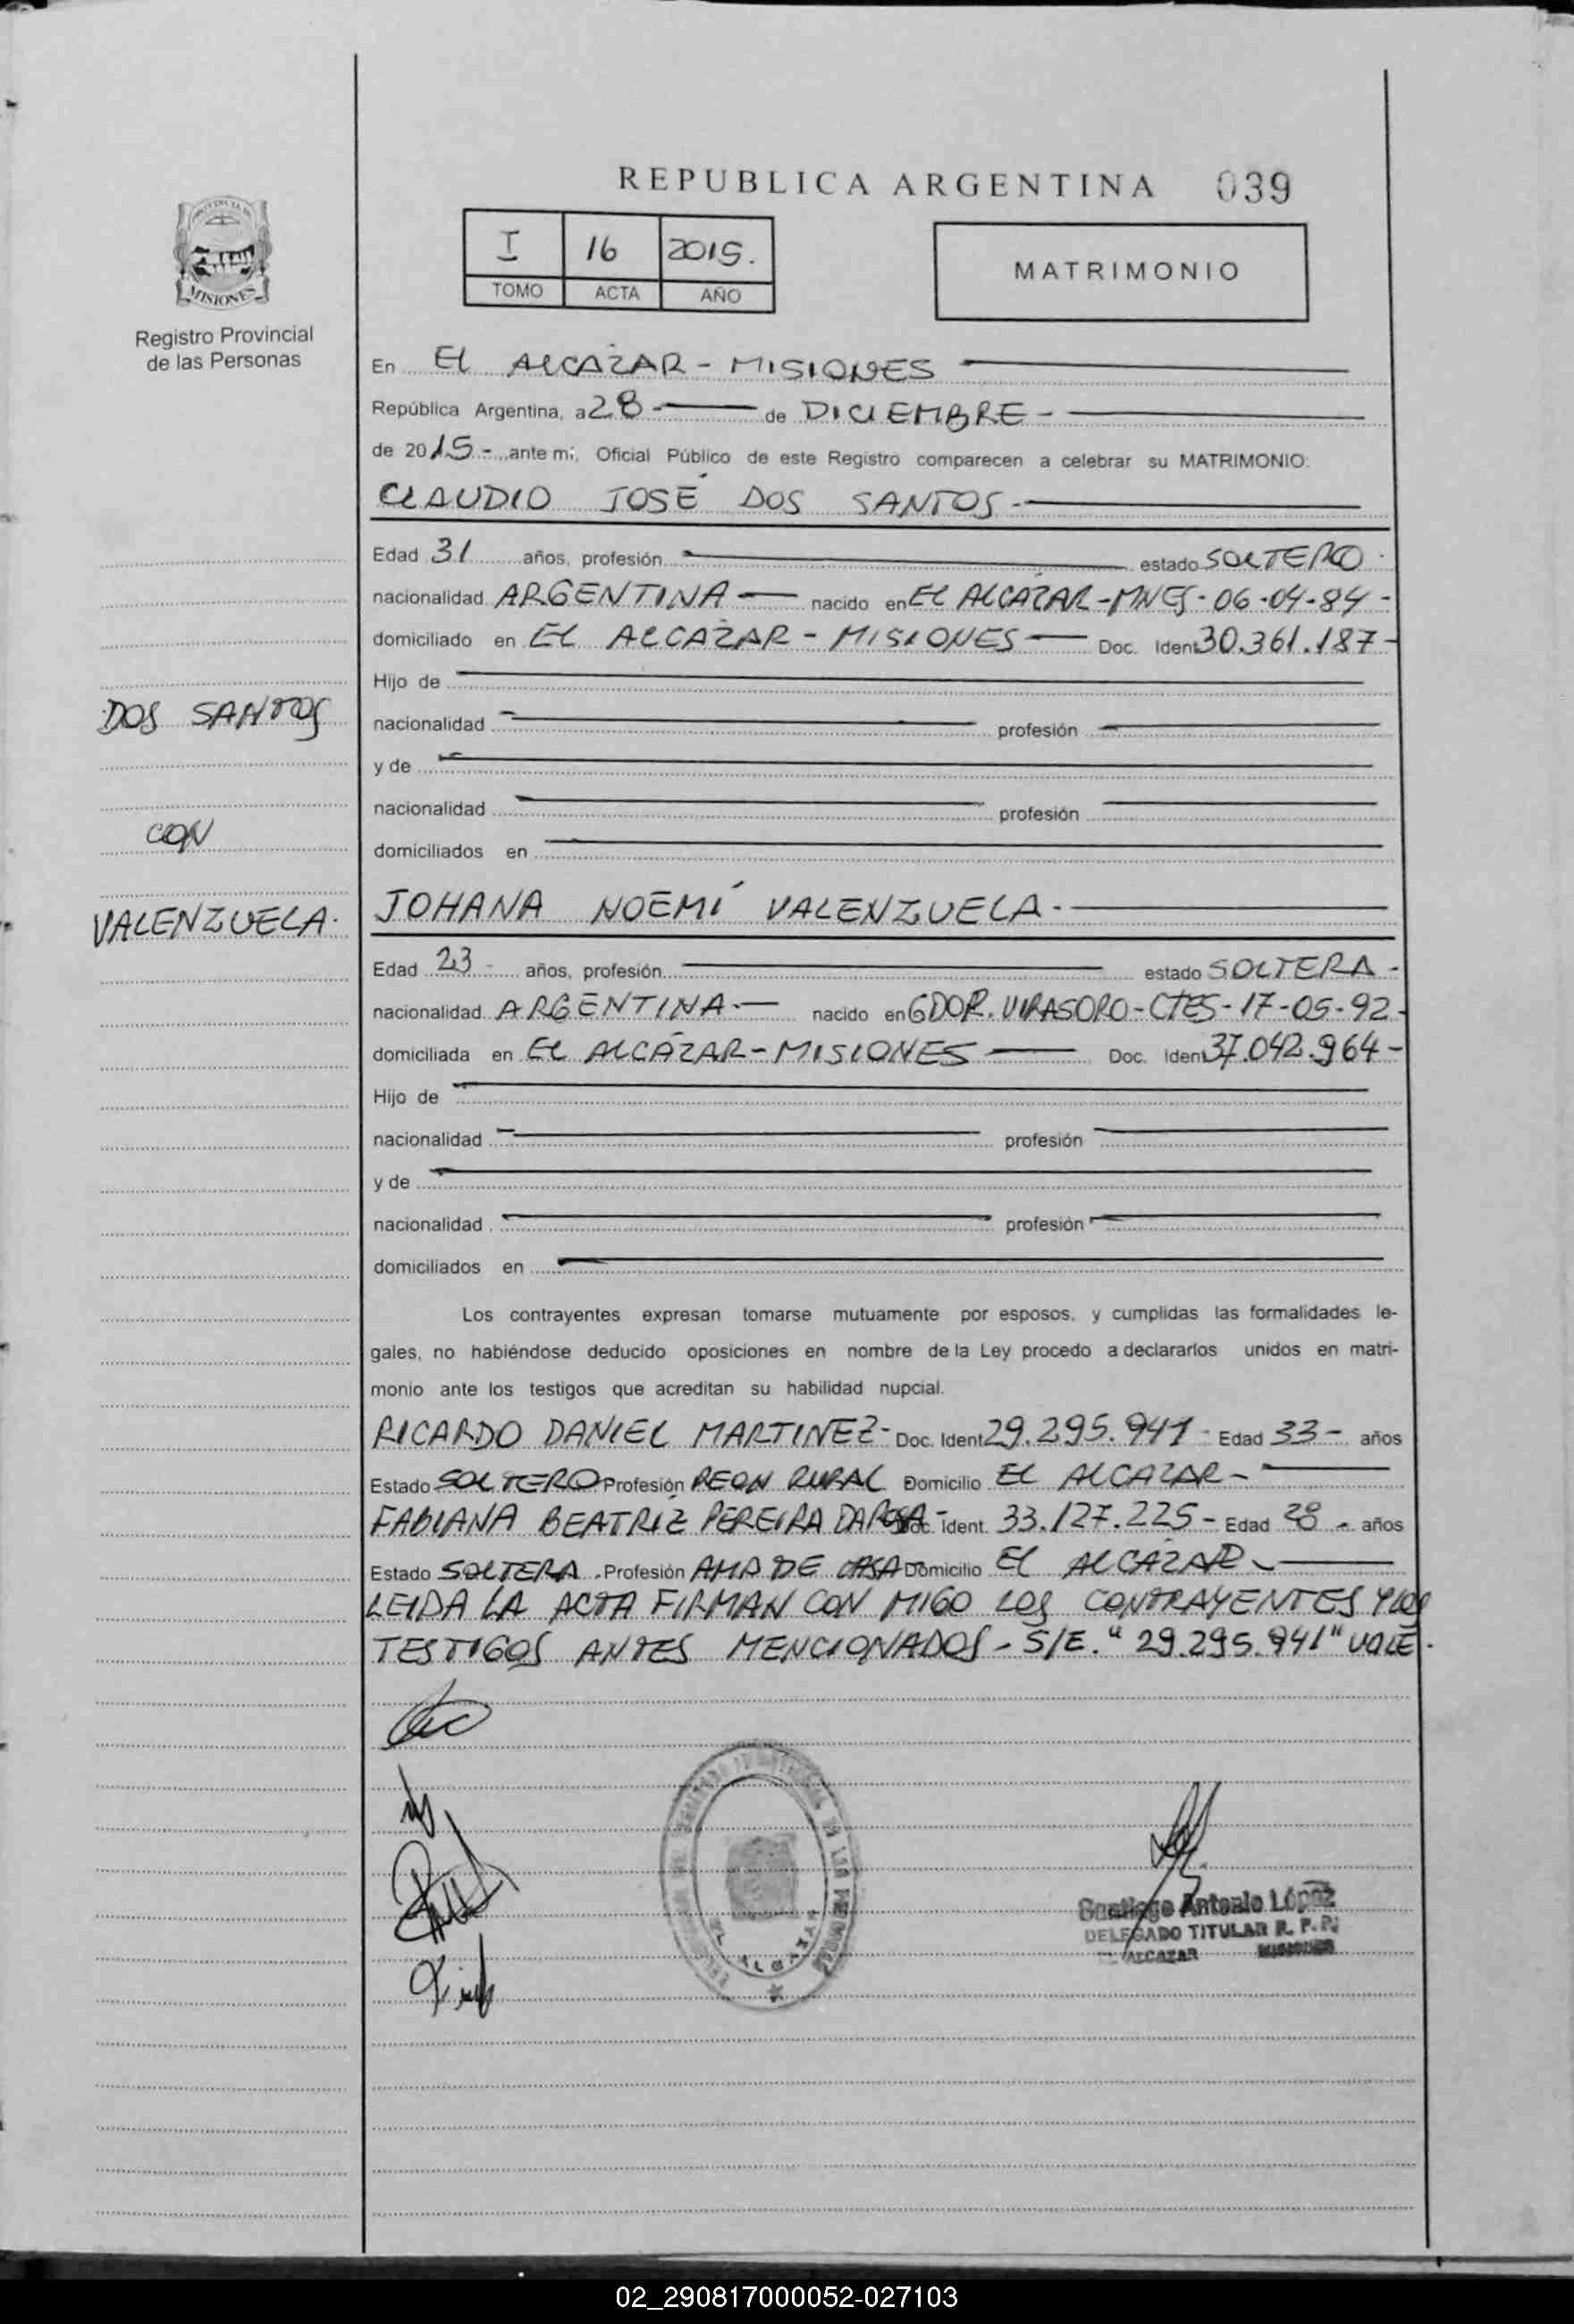 REPUBLICA ARGENTINA 039
I 16 2015.
TOMO ACTA AÑO
MATRIMONIO
MISIONES
Registro Provincial
de las Personas
En EL ALCAZAR - MISIONES
República Argentina, a 28 - de DICIEMBRE -
de 2015 - ante mi, Oficial Público de este Registro comparecen a celebrar su MATRIMONIO:
CLAUDIO JOSÉ DOS SANTOS.-
Edad 31 años, profesión estado SOLTERO.
nacionalidad ARGENTINA - nacido en EL ALCAZAR-MNES- 06-04-84 -
domiciliado en EL ALCAZAR - MISIONES - Doc. Ident 30.361.187 -
Hijo de
DOS SANTOS
nacionalidad profesión
y de
nacionalidad profesión
CON
domiciliados en
VALENZUELA.
JOHANA NOEMÍ VALENZUELA.-
Edad 23 - años, profesión estado SOLTERA -
nacionalidad ARGENTINA.- nacido en GDOR. VIRASORO-CTES-17-05-92.
domiciliada en EL ALCÁZAR-MISIONES - Doc. Ident 37.042.964-
Hijo de
nacionalidad profesión
y de
nacionalidad profesión
domiciliados en
Los contrayentes expresan tomarse mutuamente por esposos, y cumplidas las formalidades le-
gales, no habiéndose deducido oposiciones en nombre de la Ley procedo a declararlos unidos en matri-
monio ante los testigos que acreditan su habilidad nupcial.
RICARDO DANIEL MARTINEZ- Doc. Ident 29.295.941 - Edad 33 - años
Estado SOLTERO Profesión PEON RURAL Domicilio EL ALCAZAR -
FABIANA BEATRIZ PEREIRA DA ROSA- Doc. Ident. 33.127.225 - Edad 28 - años
Estado SOLTERA. Profesión AMA DE CASA Domicilio EL ALCÁZAR -
LEIDA LA ACTA FIRMAN CON MIGO LOS CONTRAYENTES Y LOS
TESTIGOS ANTES MENCIONADOS - S/E. "29.295.941" VALE.
Santiago Antonio López
DELEGADO TITULAR R. P. P.
EL ALCAZAR MISIONES
02_290817000052-027103